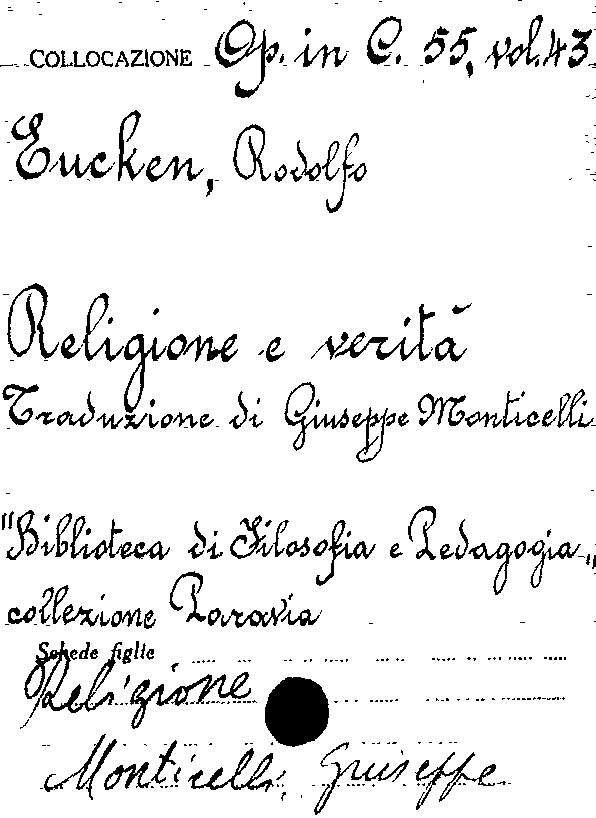 COLLOCAZIONE Op. in C. 55, vol. 43
Eucken, Rodolfo
Religione e verità
Traduzione di Giuseppe Monticelli
"Biblioteca di Filosofia e Pedagogia„
collezione Paravia
Schede figlie
Religione
Monticelli, Giuseppe